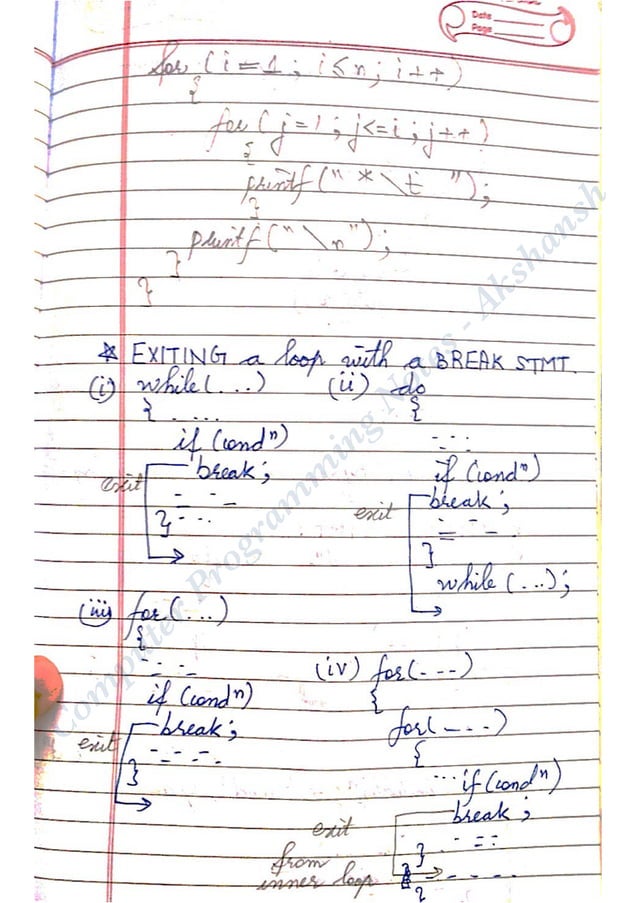 Date
Page
for (i=1; i<n; i++)
{
for (j=1; j<=i; j++)
{
printf(" * \t ");
}
printf(" \n");
}
}
☆ EXITING a loop with a BREAK STMT.
(i) while(...) (ii) do
{ .... {
if (condⁿ) ---
exit break; if (condⁿ)
- - - exit break;
} - - - = - -
}
while (...);
(iii) for(...)
{
- - - - (iv) for(---)
if (condⁿ) {
exit break; for(----)
- - - - {
} ... if (condⁿ)
break;
exit - - = =
from }
inner loop - - - -
}
Computer Programming Notes - Akshansh